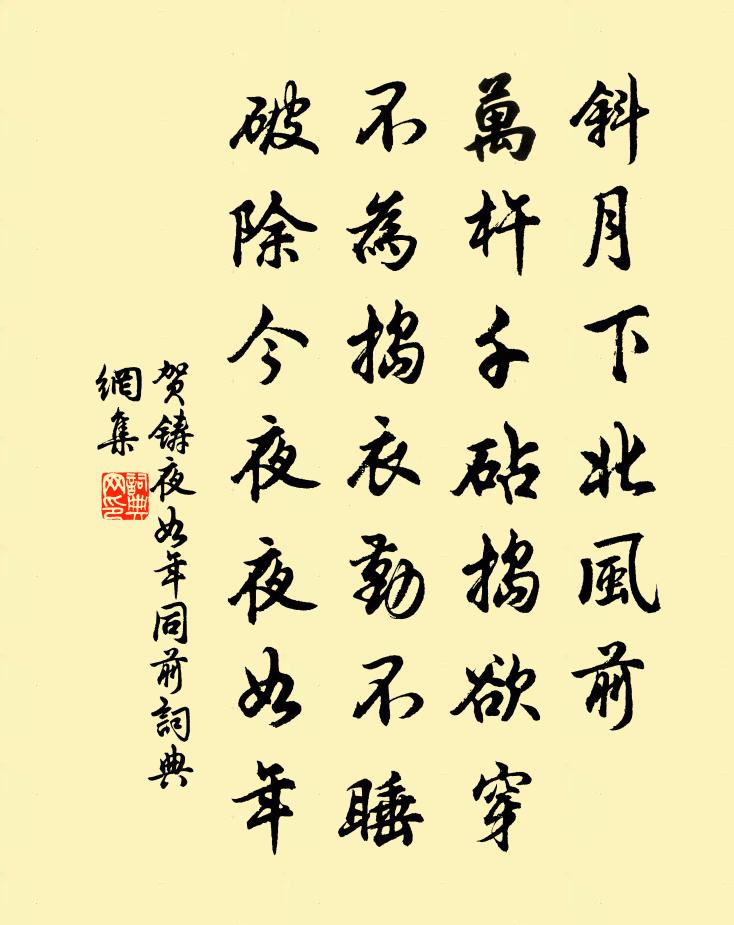 斜月下北風前
萬杵千砧搗欲穿
不為搗衣勤不睡
破除今夜夜如年
賀鑄夜如年同前詞典
網集
詞典網印